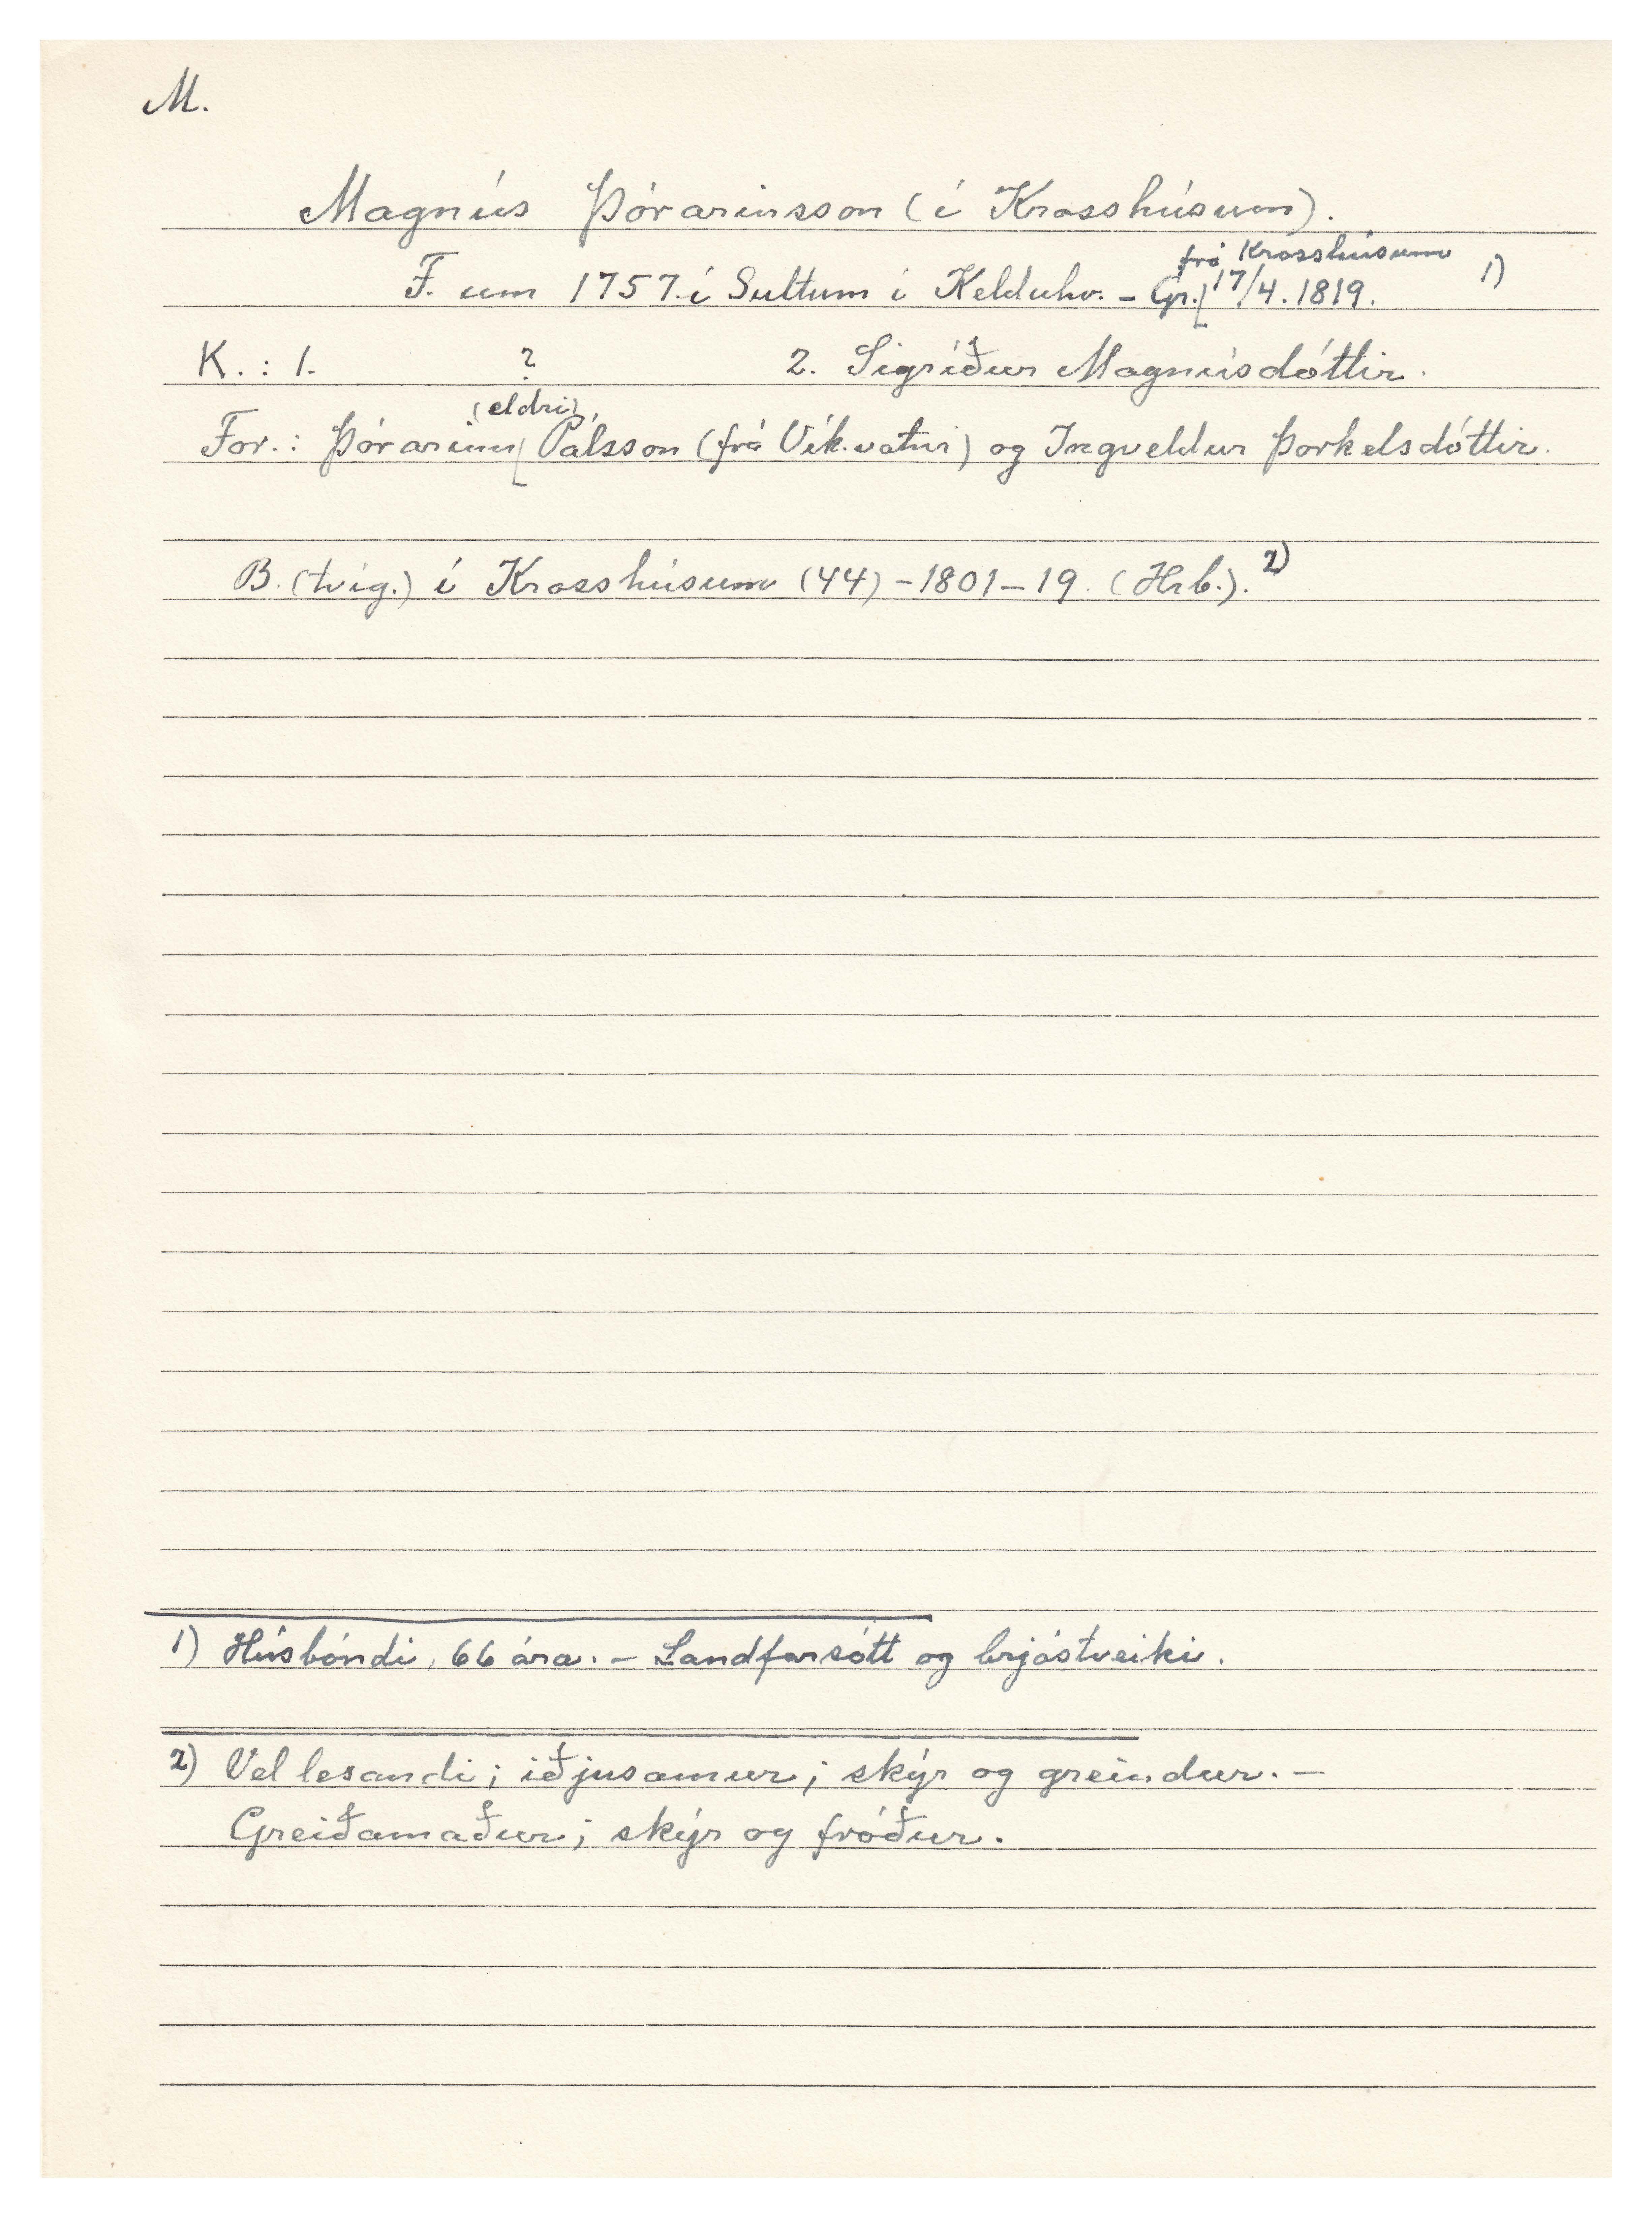 M.
Magnús Þórarinsson (í Krosshúsum).
frá Krosshúsum
F. um 1757 í Sultum í Kelduhv. – Gr. [ 17/4. 1819. 1)
K. : 1. ? 2. Sigríður Magnúsdóttir.
(eldri)
For. : Þórarinn [ Pálsson (frá Vík.vatni) og Ingveldur Þorkelsdóttir.
B. (tvíg.) í Krosshúsum (44) – 1801 – 19. (Hrb.). 2)
1) Húsbóndi, 66 ára. – Landfarsótt og brjóstveiki.
2) Vel lesandi; iðjusamur; skýr og greindur. –
Greiðamaður; skýr og fróður.